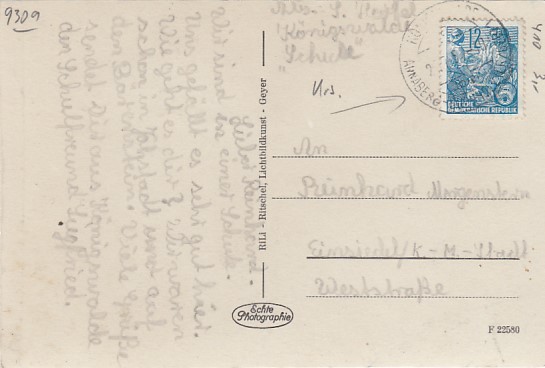 9309
Königswalde
"Schule"
12
DEUTSCHE
DEMOKRATISCHE REPUBLIK
5
ANNABERG
Lieber Reinhard.
Wir sind in einer Schule.
Uns gefällt es sehr gut hier.
Wie geht es dir? Wir waren
schon in und auf
den Viele Grüße
sendet dir aus Königswalde
der Schulfreund Siegfried.
RILI - Ritschel, Lichtbildkunst - Geyer
An
Reinhard Morgenstern
Einsiedel/K.-M.-Stadt
Weststraße
Echte
Photographie
F 22580